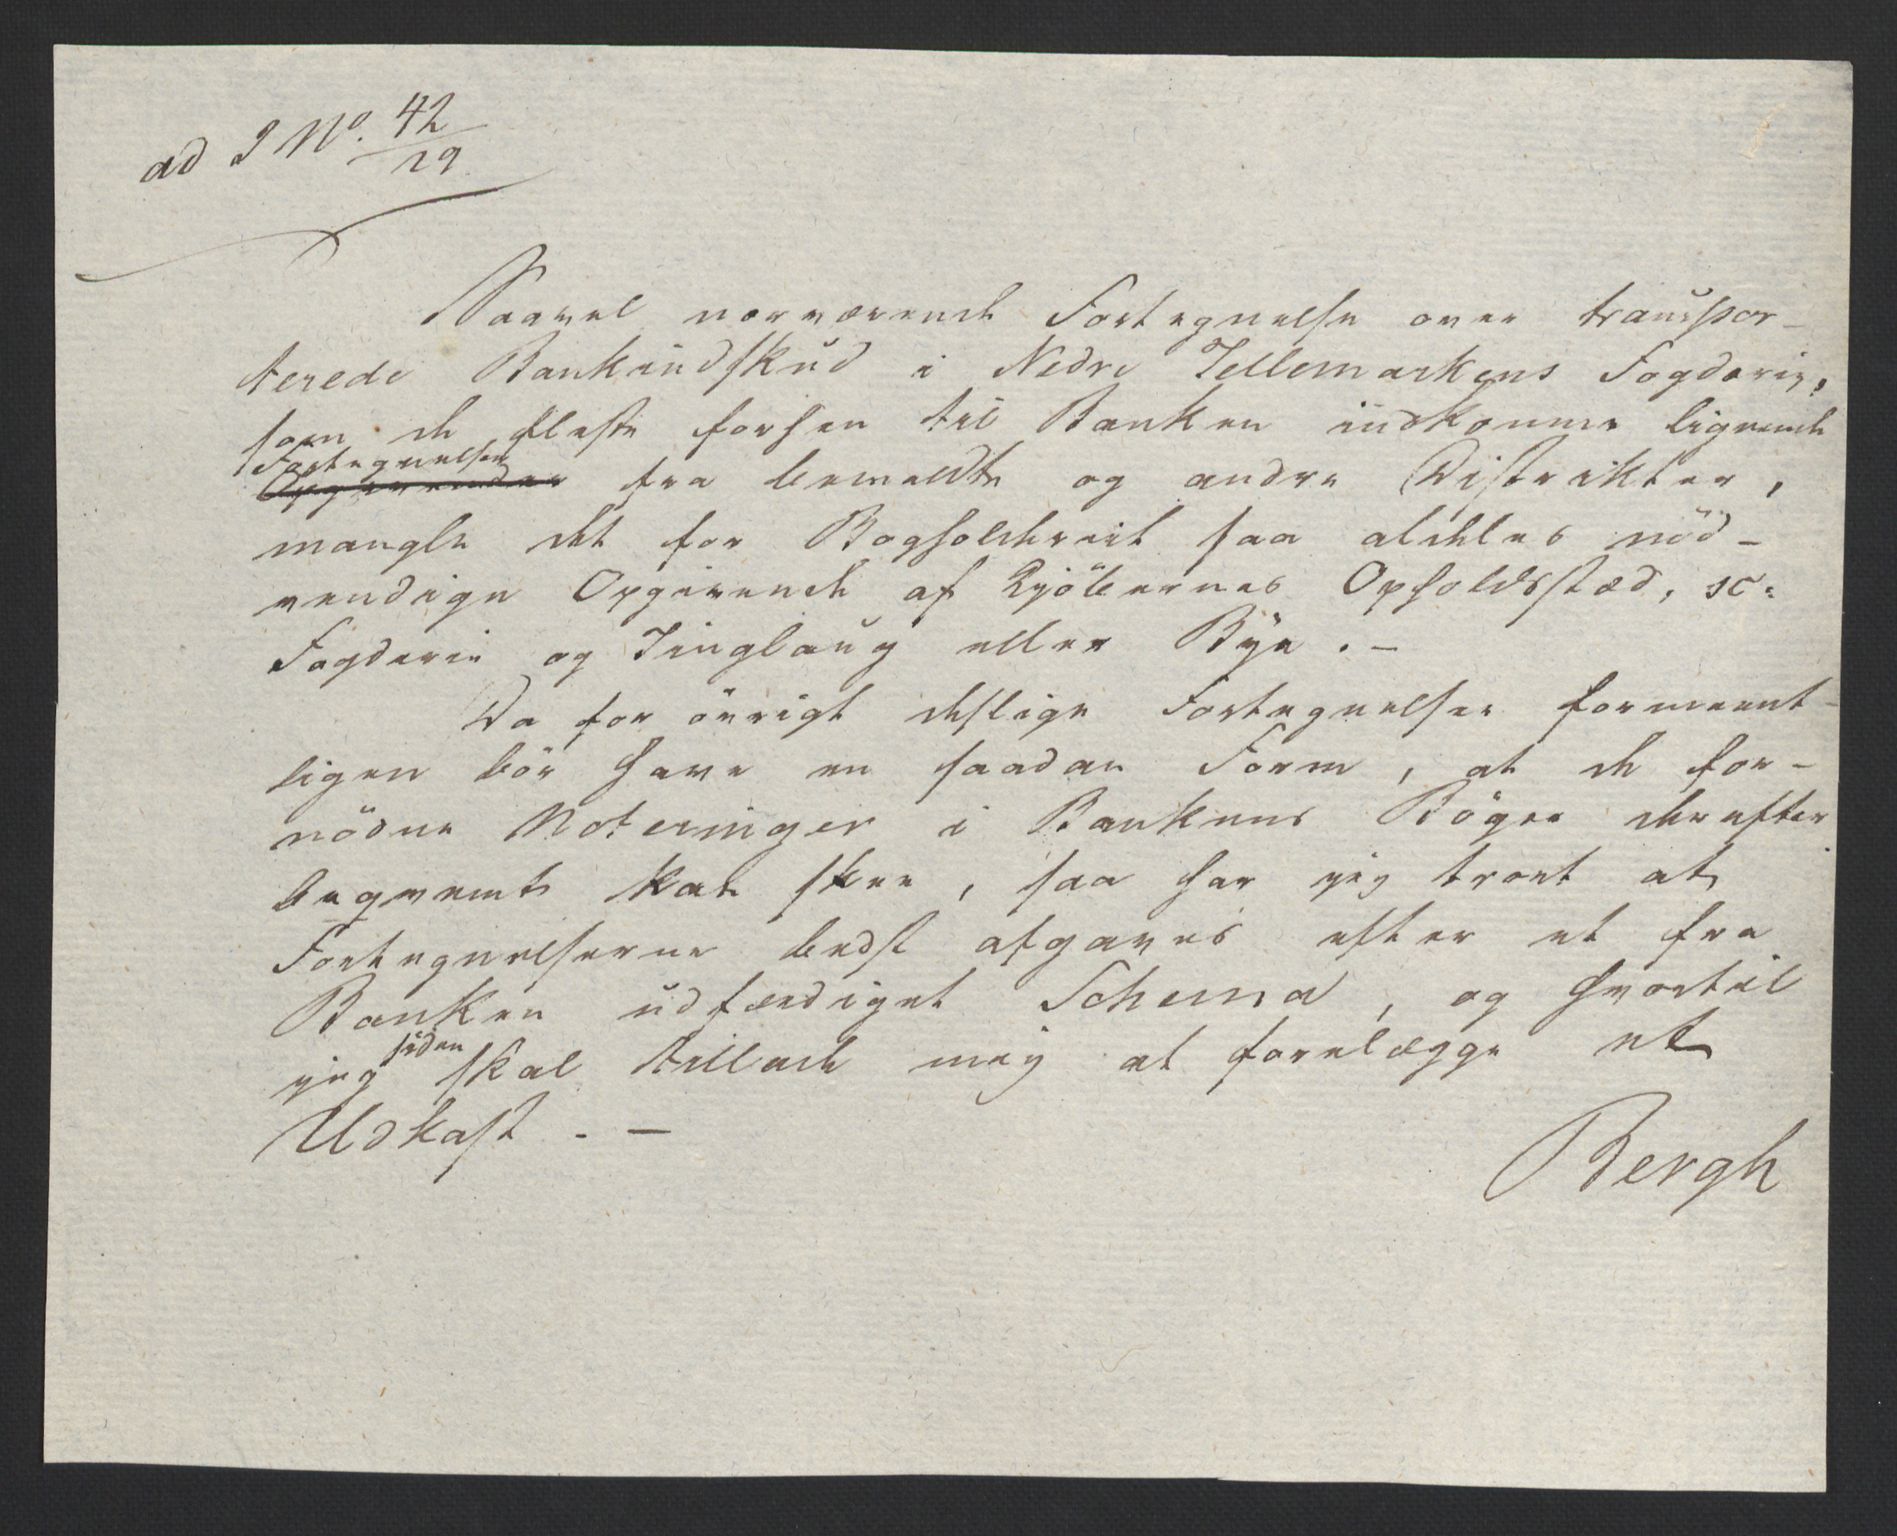 ad J No. 42/29
Saavel nærværende Fortegnelse over transpor-
terede Bankindskud i Nedre Tellemarkens Fogderie,
som de fleste forhen til Banken indkomne lignende
Fortegnelser
Opgivender fra bemeldte og andre Distrikter,
mangle det for Bogholderiet saa aldeles nöd-
vendige Opgivende af Kjöbernes Opholdsstæd, sc:
Fogderie og Tinglaug eller Bye. -
Da for övrigt deslige Fortegnelser formeent-
ligen bör have en saadan Form, at de for-
nödne Noteringer i Bankens Böger derefter
beqvemt kan skee, saa har jeg troet at
Fortegnelserne bedst afgaves efter et fra
Banken udfærdiget Schema, og hvortil
siden
jeg skal tillade mig at forelægge et
Udkast. -
Bergh